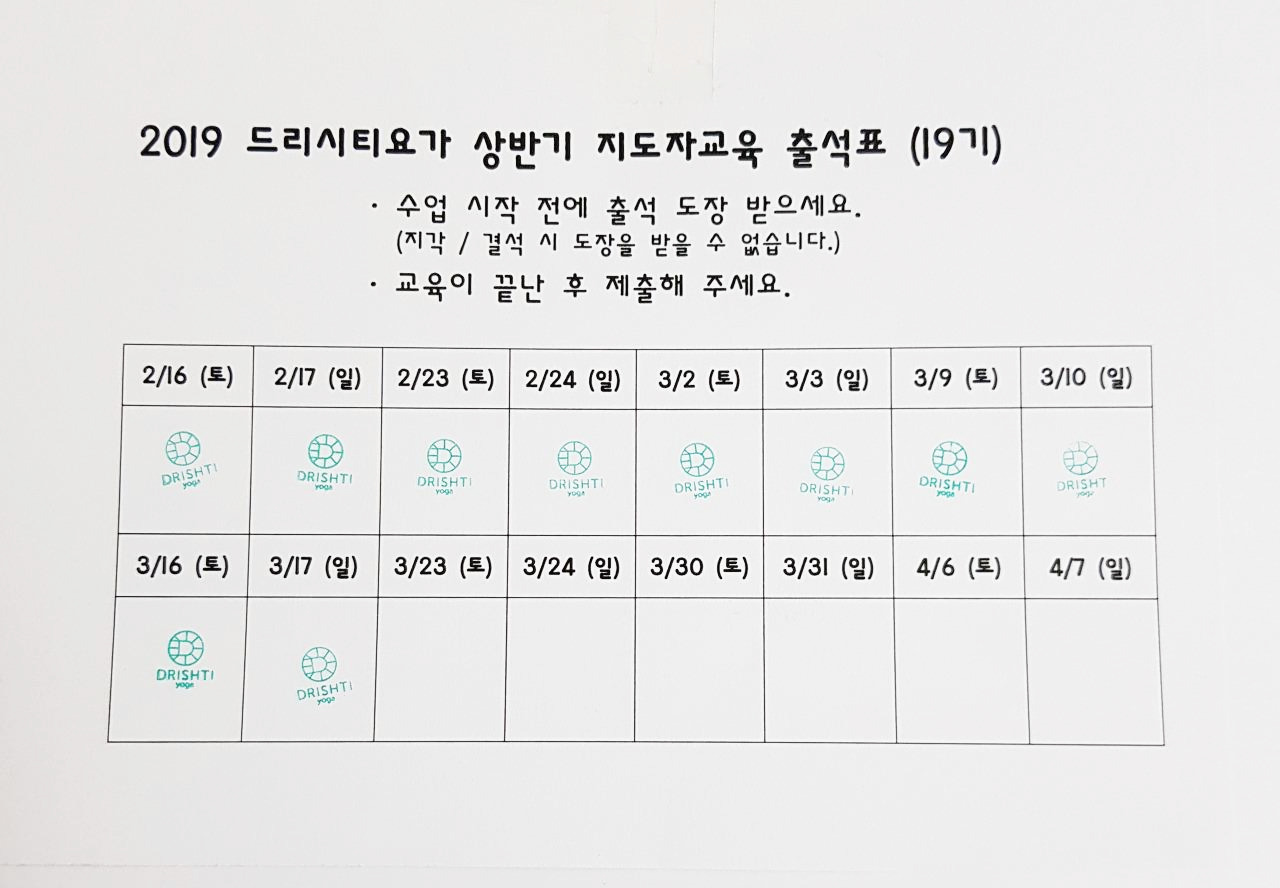 2019 드리시티요가 상반기 지도자교육 출석표 (19기)
· 수업 시작 전에 출석 도장 받으세요.
(지각 / 결석 시 도장을 받을 수 없습니다.)
· 교육이 끝난 후 제출해 주세요.
2/16 (토) 2/17 (일) 2/23 (토) 2/24 (일) 3/2 (토) 3/3 (일) 3/9 (토) 3/10 (일)
DRISHTI DRISHTI DRISHTI DRISHTI DRISHTI DRISHTI DRISHTI DRISHT
yoga yoga yoga yoga yoga yoga yoga yoga
3/16 (토) 3/17 (일) 3/23 (토) 3/24 (일) 3/30 (토) 3/31 (일) 4/6 (토) 4/7 (일)
DRISHTI DRISHTI
yoga yoga